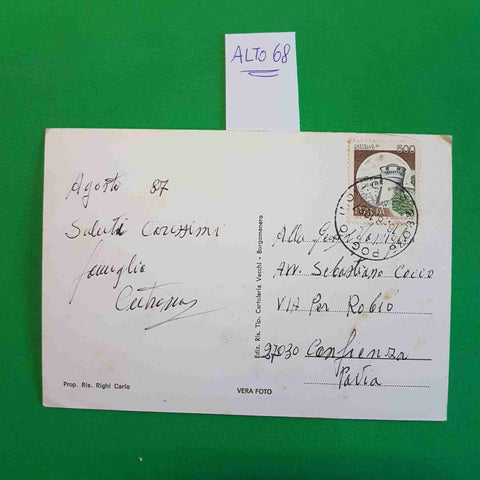 ALTO 68
500
Agosto 87
Saluti Carissimi
famiglia
Alla
Avv. Sebastiano Cocco
VIA Per Robio
27030 Confienza
Pavia
Ediz. Ris. Tip. Cartoleria Vecchi - Borgomanero
Prop. Ris. Righi Carlo
VERA FOTO